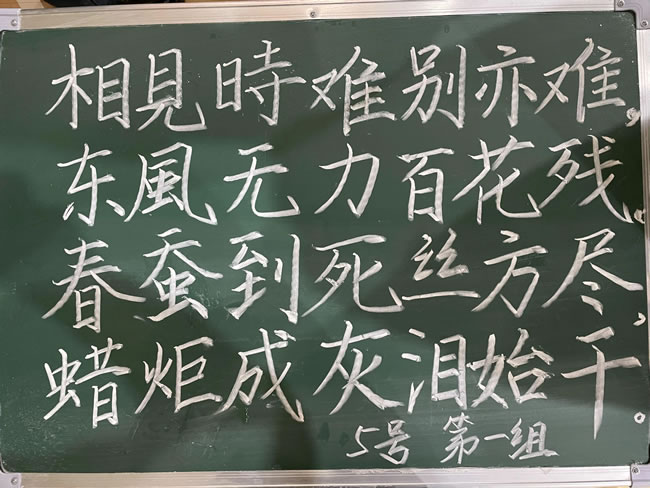 相見時难别亦难，
东風无力百花残。
春蚕到死丝方尽，
蜡炬成灰泪始干。
5号 第一组